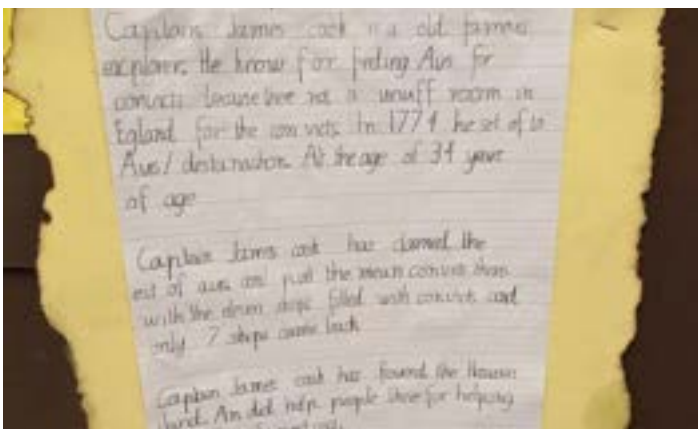 Captain James cook is a old famous
explorer. He know for finding Aus for
convicts because there not a unuff room in
England for the convicts. In 1774 he set of to
Aus/ destination. At the age of 34 years
of age
Captain James cook has claimed the
est of aus and put the mean convicts than
with the eleven ships filled with convicts and
only 7 ships came back
Captain James cook has found the Hawaii
land. An did help people there for helping